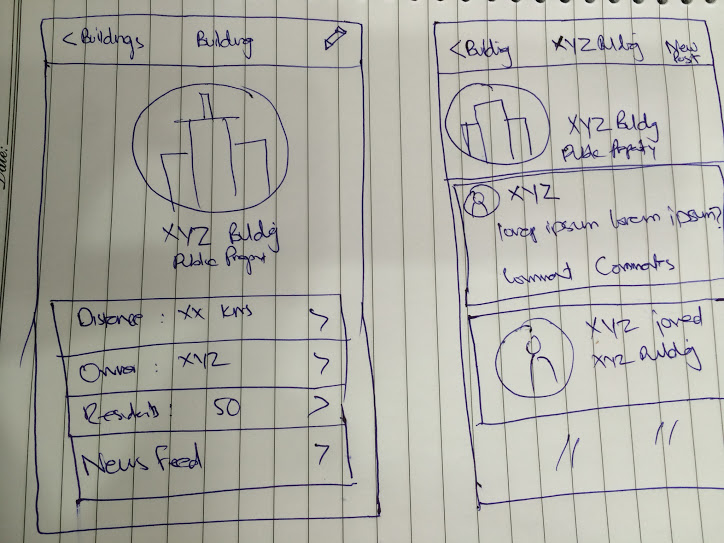 Date:
< Buildings Building
XYZ Bldg
Public Propert
Distance : XX Kms >
Owner : XYZ >
Residents : 50 >
News Feed >
< Buldig XYZ Bldig New Post
XYZ Bldg
Public Property
XYZ
lorem ipsum lorem ipsum?
Comment Comments
XYZ joined
XYZ Buldig